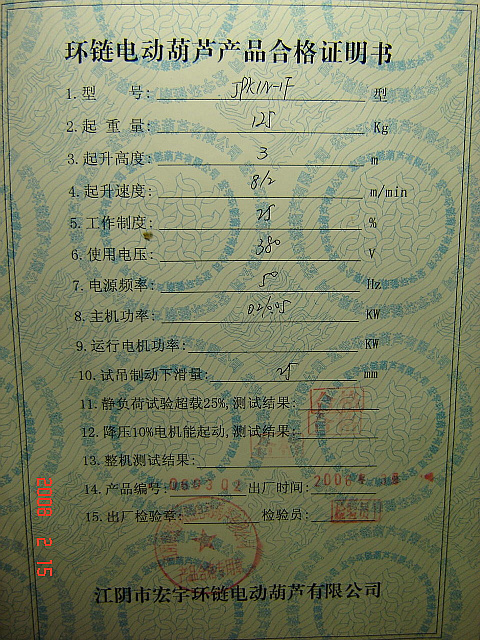 环链电动葫芦产品合格证明书
1.型 号: 型
2.起 重 量: 125 Kg
3.起升高度: 3 m
4.起升速度: 8/2 m/min
5.工作制度: 25 %
6.使用电压: 380 V
7.电源频率: 50 Hz
8.主机功率: KW
9.运行电机功率: KW
10.试吊制动下滑量: 25 mm
11.静负荷试验超载25%,测试结果:
12.降压10%电机能起动,测试结果:
13.整机测试结果:
14.产品编号: 出厂时间: 2008
15.出厂检验章: 检验员:
2008 2 15
江阴市宏宇环链电动葫芦有限公司